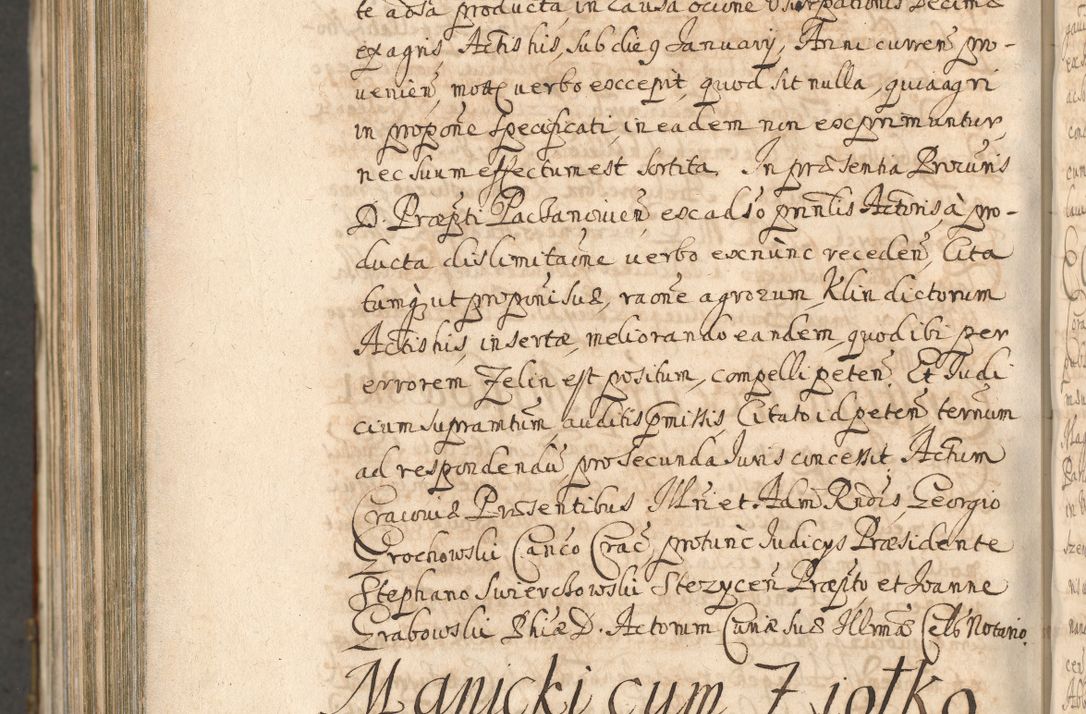 te ad sa producta in causa occõne Usurpationis Decimæ
ex agris, Actis his, sub die 9 January, Anni curreñ pro-
venieñ, motæ verbo exccepit, quod sit nulla, quia agri
in propõne specificati, in eadem non exprimuntur,
nec suum effectum est sortita. In præsentia Procuris
D. Præpti Pachanovieñ, ex adso prinlis Actoris à pro-
ducta dislimitaõne verbo exnùnc recedeñ, Cita
tumq̃ ut propõni suæ, raõne agrorum Klin dictorum
Actis his, insertæ, meliorando eandem, quod ibi per
errorem Zelin est positum, compelli peteñ. Et Judi
cium supramtum, auditis pmissis, Citato id peteñ ternum
ad respondendũ pro secunda Juris concessit. Actum
Cracoviæ Præsentibus Illri et Adm Rndis, Georgio
Grochowski Canco Crac, protunc Judicys Præsidente
Stephano Swierchowski Stezyceñ Præpto et Joanne
Grabowski Phiæ D. Actorum Curiæ suæ Illmæ Cels Notario.
Manicki cum Ziołko